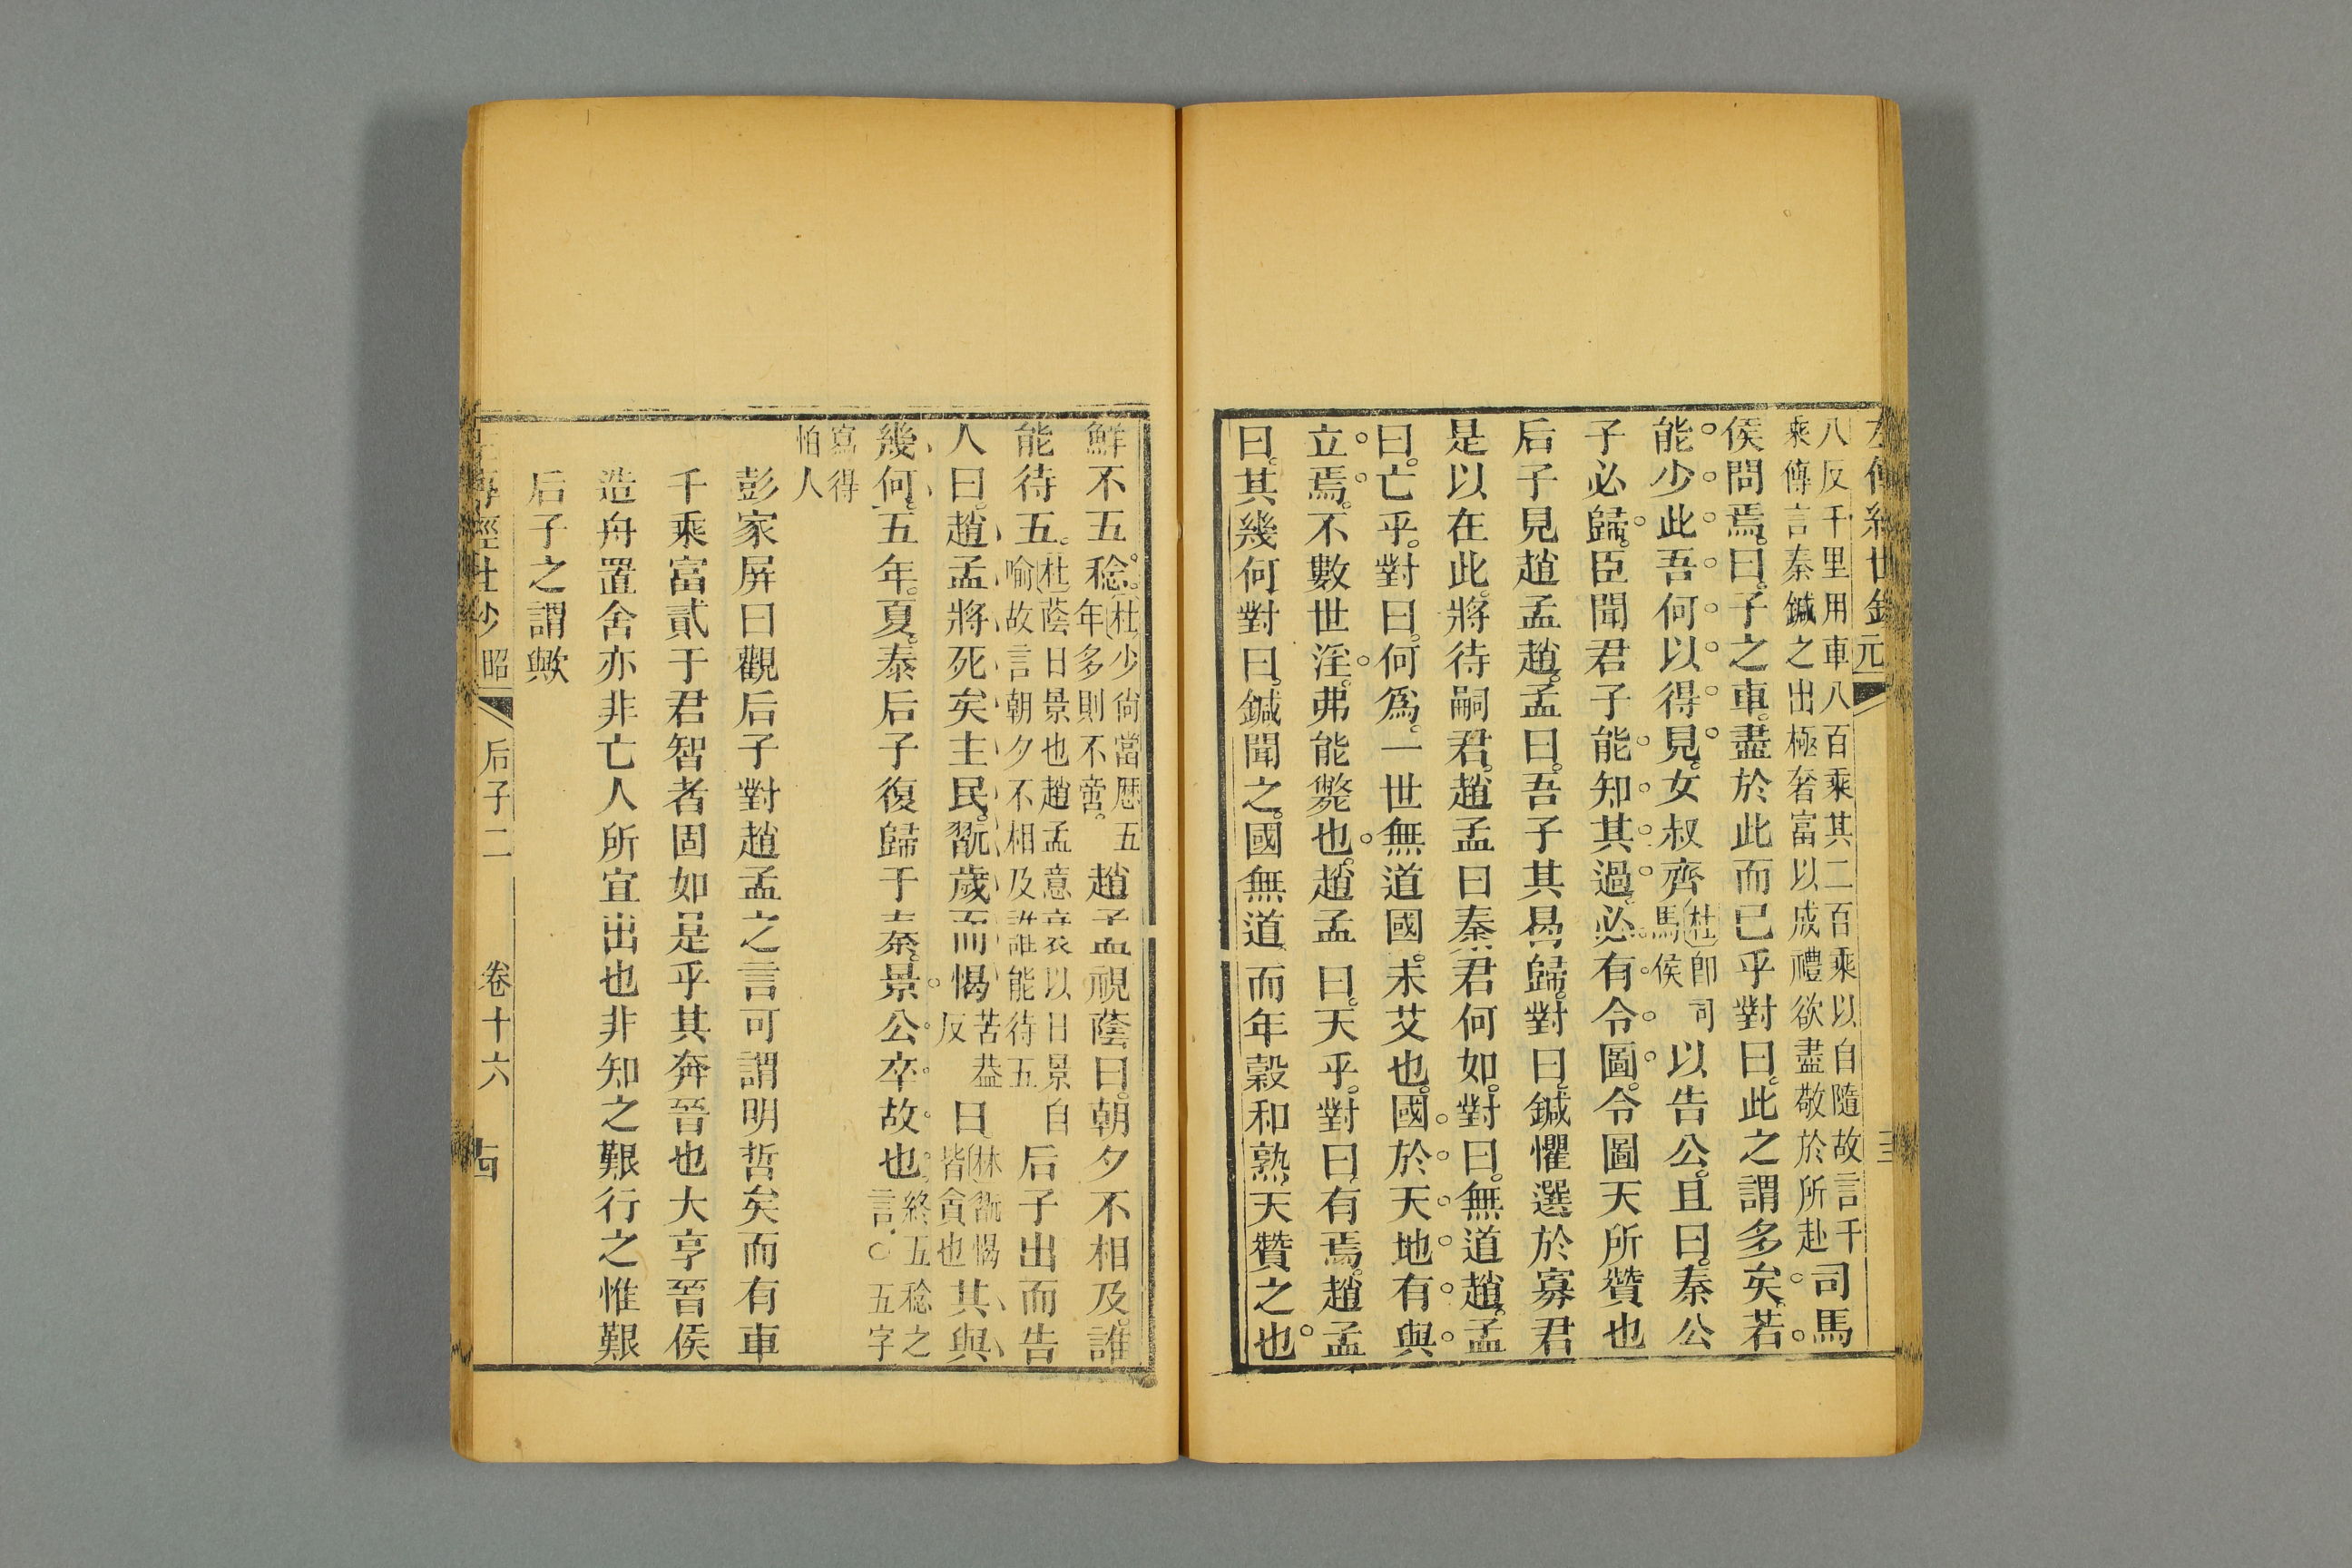 八反千里用車八百乘其二百乘以自隨故言千
乘傳言秦鍼之出極奢富以成禮欲盡敬於所赴
司馬
侯問焉。曰。子之車。盡於此而已乎對曰。此之謂多矣。若
能少此吾何以得見。女叔齊
杜卽司
馬侯
以告公。且曰。秦公
子必歸。臣聞君子能知其過。必有令圖。令圖天所贊也
后子見趙孟趙。孟曰。吾子其曷歸。對曰。鍼懼選於寡君
是以在此。將待嗣君。趙孟曰秦君何如。對曰。無道趙。孟
曰。亡乎。對曰。何爲。一世無道國。未艾也。國於天地有與
立焉。不數世淫。弗能斃也。趙孟曰。天乎。對曰。有焉。趙孟
曰。其幾何對曰。鍼聞之。國無道而年穀和熟。天贊之也
鮮不五稔。
杜少尙當歷五
年多則不啻。
趙孟視蔭曰。朝夕不相及。誰
能待五。
杜蔭日景也趙孟意衰以日景自
喻故言朝夕不相及誰能待五
后子出而告
人曰。趙孟將死矣主民。翫歲而愒
苦葢
反
日
林翫愒
皆貪也
其與
幾何。五年。夏。秦后子復歸于秦。景公卒故也。
終五稔之
言。○五字
寫得
怕人
彭家屏曰觀后子對趙孟之言可謂明哲矣而有車
千乘富貳于君智者固如是乎其奔晉也大享晉侯
造舟置舍亦非亡人所宜出也非知之艱行之惟艱
后子之謂歟
昭
后子二
卷十六